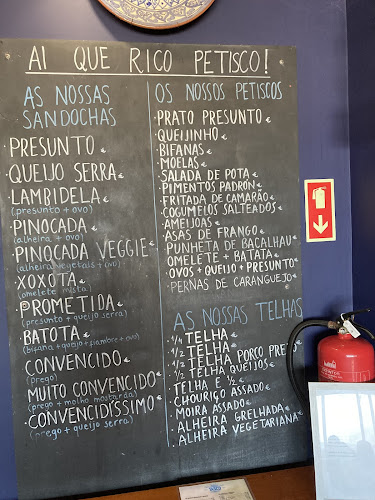 AI QUE RICO PETISCO!
AS NOSSAS
SANDOCHAS
PRESUNTO €
QUEIJO SERRA €
LAMBIDELA €
(presunto + ovo)
PINOCADA €
(alheira + ovo)
PINOCADA VEGGIE €
(alheira vegetais + ovo)
XOXOTA €
(omelete mista)
PROMETIDA €
(presunto + queijo serra)
BATOTA €
(bifana + queijo + fiambre + ovo)
CONVENCIDO €
(prego)
MUITO CONVENCIDO €
(prego + molho mostarda)
CONVENCIDÍSSIMO €
(prego + queijo serra)
OS NOSSOS PETISCOS
PRATO PRESUNTO €
QUEIJINHO €
BIFANAS €
MOELAS €
SALADA DE POTA €
PIMENTOS PADRÓN €
FRITADA DE CAMARÃO €
COGUMELOS SALTEADOS €
AMEIJOAS €
ASAS DE FRANGO €
PUNHETA DE BACALHAU €
OMELETE + BATATA €
OVOS + QUEIJO + PRESUNTO €
PERNAS DE CARANGUEJO €
AS NOSSAS TELHAS
1/4 TELHA €
1/2 TELHA €
1/2 TELHA PORCO PRETO
1/2 TELHA QUEIJOS €
TELHA E 1/2 €
CHOURIÇO ASSADO €
MOIRA ASSADO €
ALHEIRA GRELHADA €
ALHEIRA VEGETARIANA €